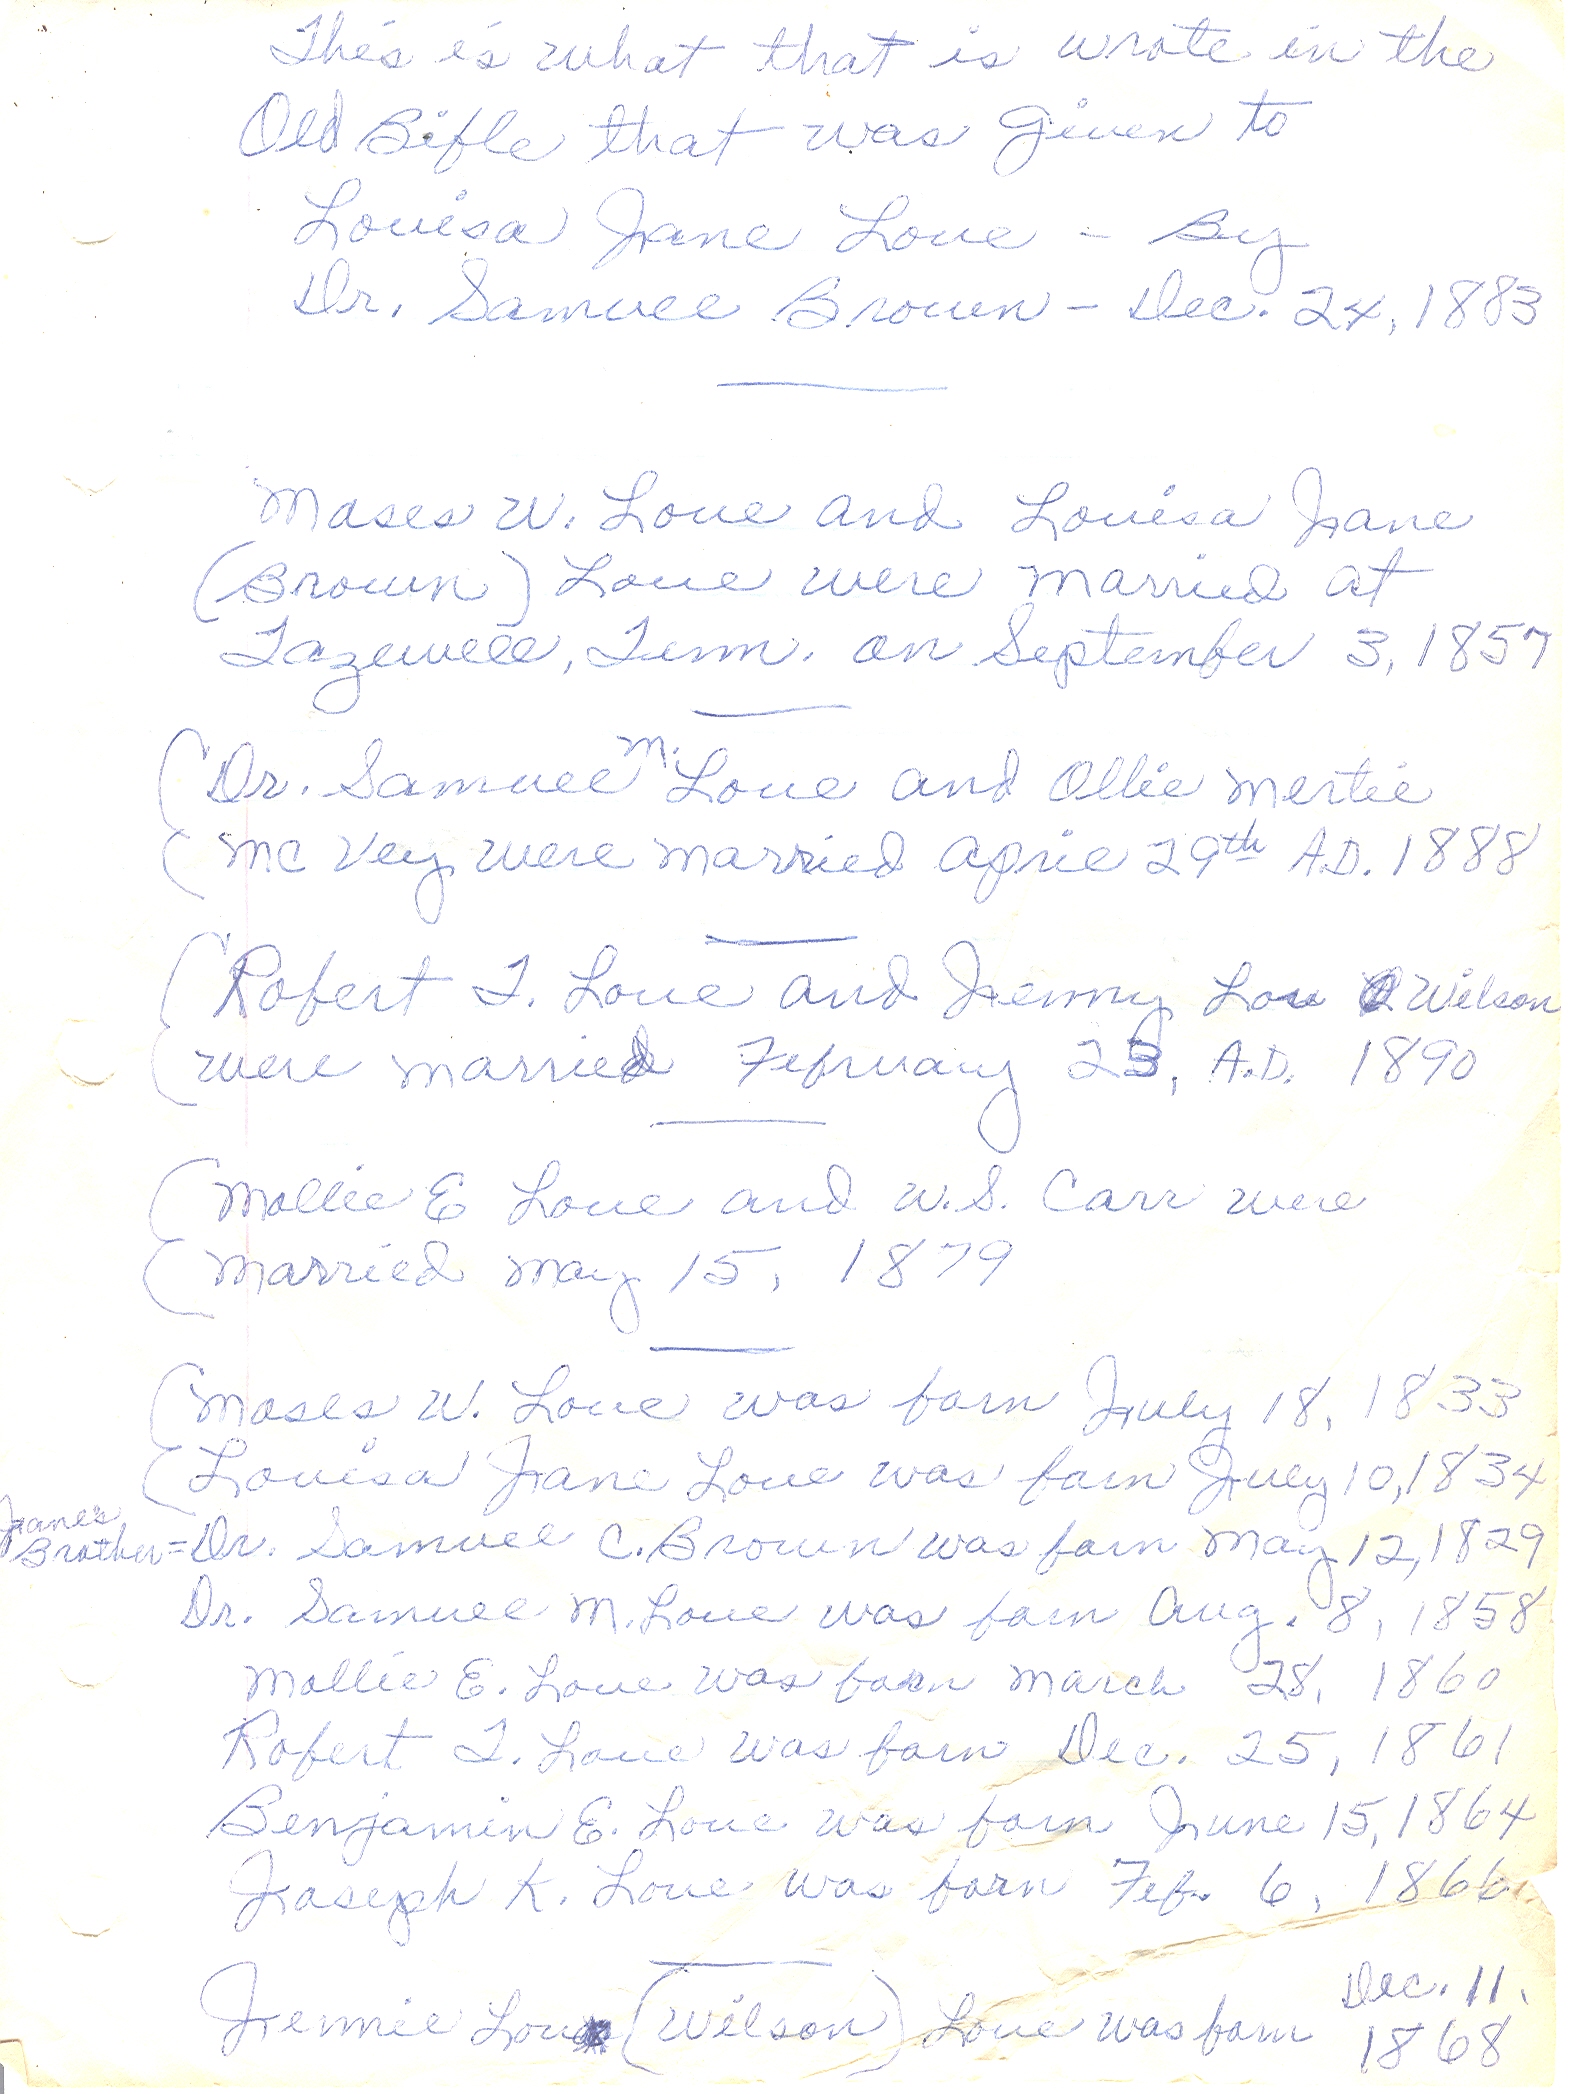 This is what that is wrote in the
Old Bible that was given to
Louisa Jane Love - By
Dr. Samuel Brown - Dec. 24, 1883
Moses W. Love and Louisa Jane
(Brown) Love were married at
Tazewell, Tenn. on September 3, 1857
Dr. Samuel M. Love and Ollie Mertie
Mc Vey were married April 29th A.D. 1888
Robert T. Love and Jenny Lou Wilson
were married February 23, A.D. 1890
Mollie E Love and W.S. Carr were
married May 15, 1879
Moses W. Love was born July 18, 1833
Louisa Jane Love was born July 10, 1834
Jane's
Brother = Dr. Samuel C. Brown was born May 12, 1829
Dr. Samuel M. Love was born Aug. 8, 1858
Mollie E. Love was born March 28, 1860
Robert T. Love was born Dec. 25, 1861
Benjamin E. Love was born June 15, 1864
Joseph K. Love was born Feb. 6, 1866
Jennie Lou (Wilson) Love was born Dec. 11,
1868